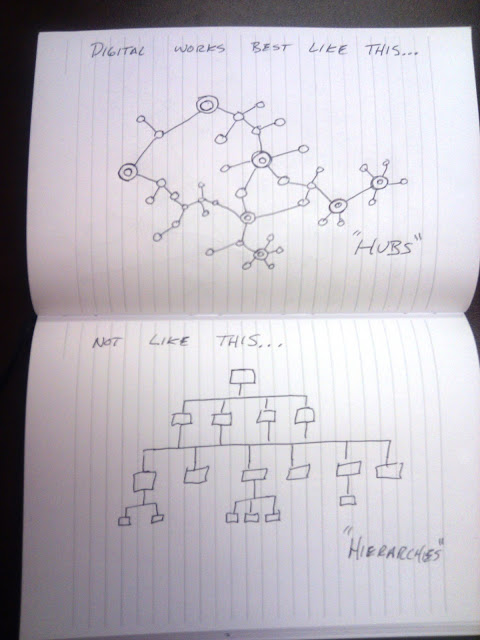 DIGITAL WORKS BEST LIKE THIS...
"HUBS"
NOT LIKE THIS...
"HIERARCHIES"